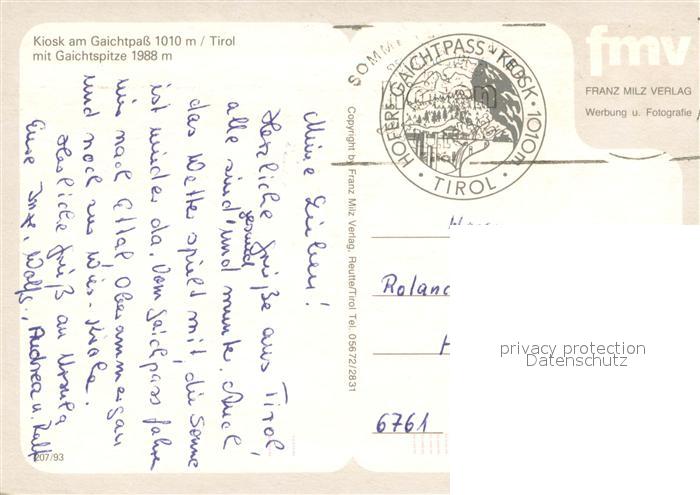 Kiosk am Gaichtpaß 1010 m / Tirol
mit Gaichtspitze 1988 m
Meine Lieben!
Herzliche Grüße aus Tirol,
alle sind gesund und munter. Auch
das Wetter spielt mit, die Sonne
ist wieder da. Vom Gaichtpass fahren
wir nach Ettal, Oberammergau
und noch zur Wies-Kirche.
Herzliche Grüße an Ursula
Eure Inge, Wolfg., Andrea u. Ralf
207/93
Copyright by Franz Milz Verlag, Reutte/Tirol Tel. 05672/2831
SOMM
HÖFERE-GAICHTPASS-KIOSK · 1010m · TIROL ·
fmv
FRANZ MILZ VERLAG
Werbung u. Fotografie
Roland
6761
privacy protection
Datenschutz